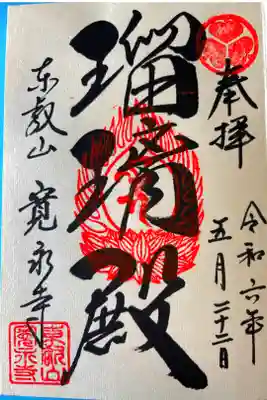 奉拝
令和六年
五月二十二日
瑠璃殿
東叡山
寛永寺
東叡山
寛永寺